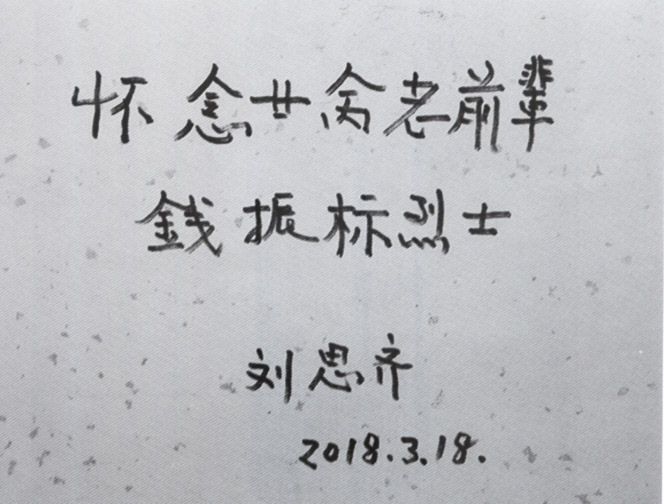 怀念廿老前輩
銭振标烈士
刘思齐
2018.3.18.